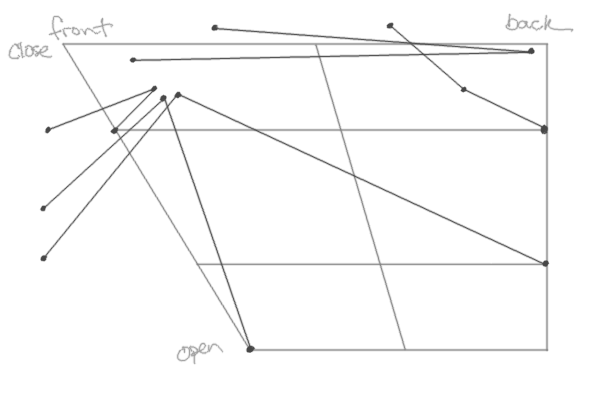 front
back
Close
open